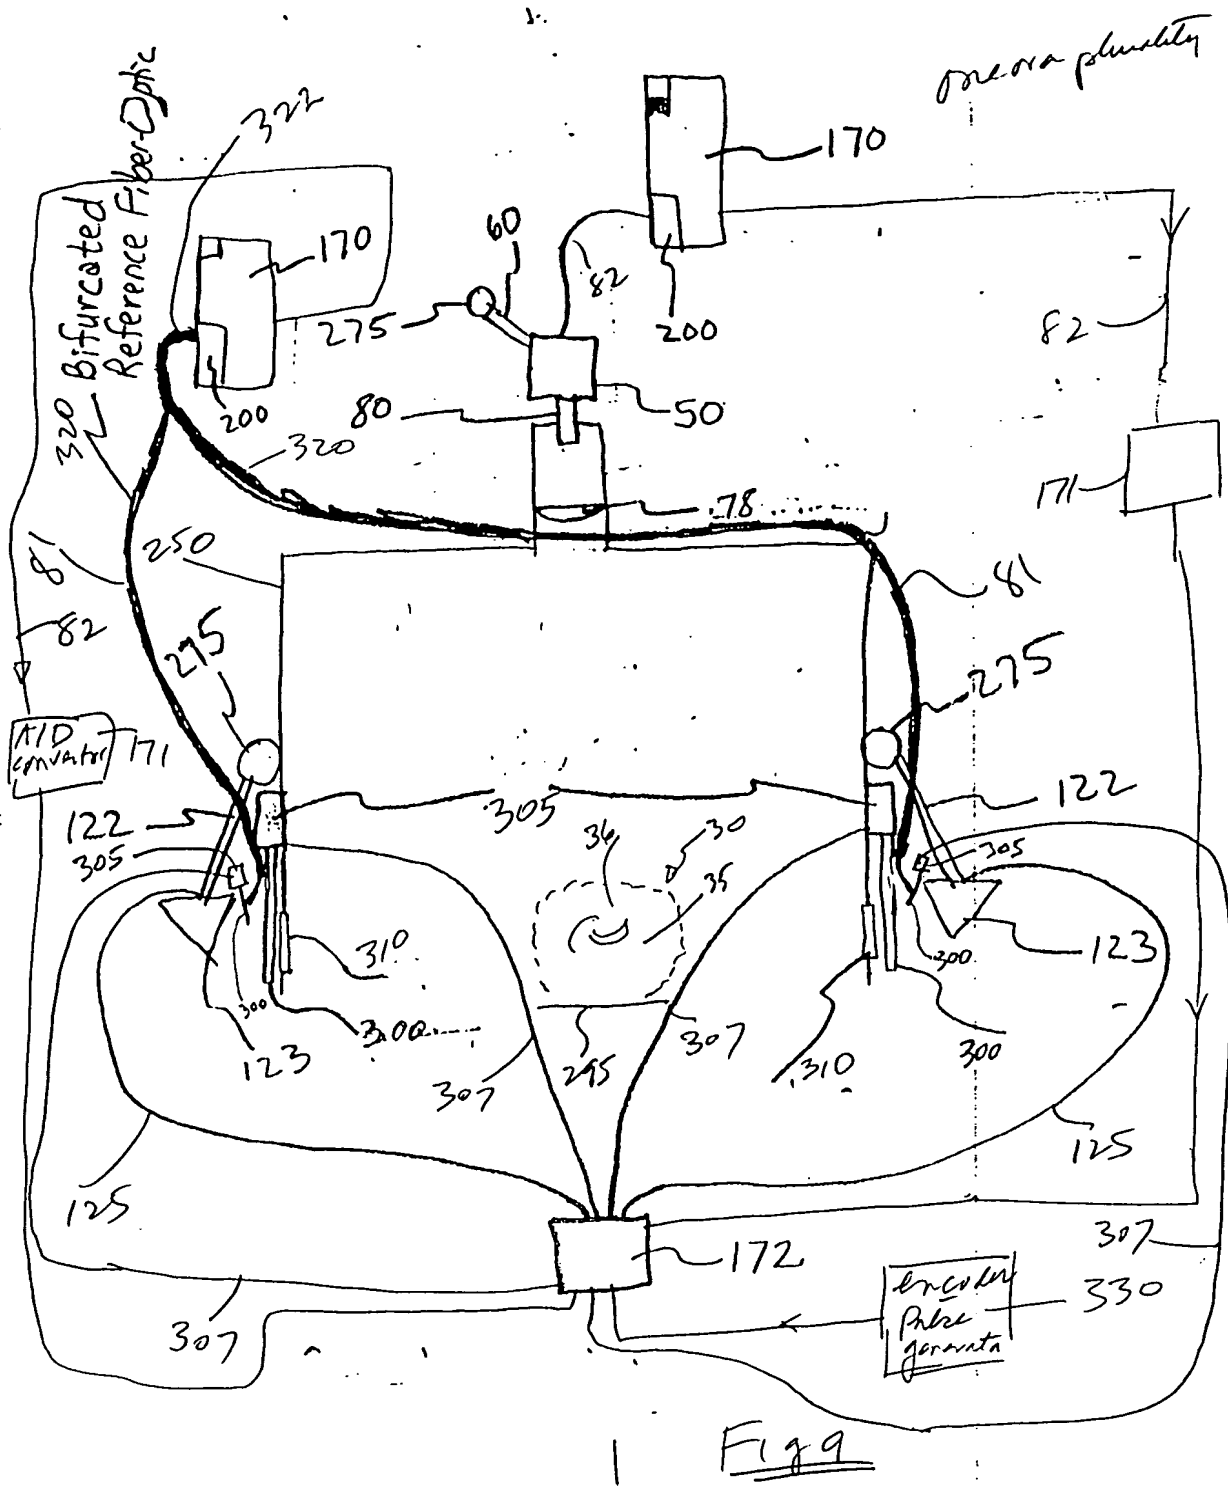 one or a plurality
Bifurcated
Reference Fiber-Optic
322
170
170
60
82
275
200
82
200
80
50
320
320
78
171
81
250
81
82
275
275
A/D
convertor
171
305
122
122
305
36
30
305
35
310
300
123
300
300
307
123
295
310
300
307
125
125
307
172
encoder
pulse
generator
330
307
Fig 9